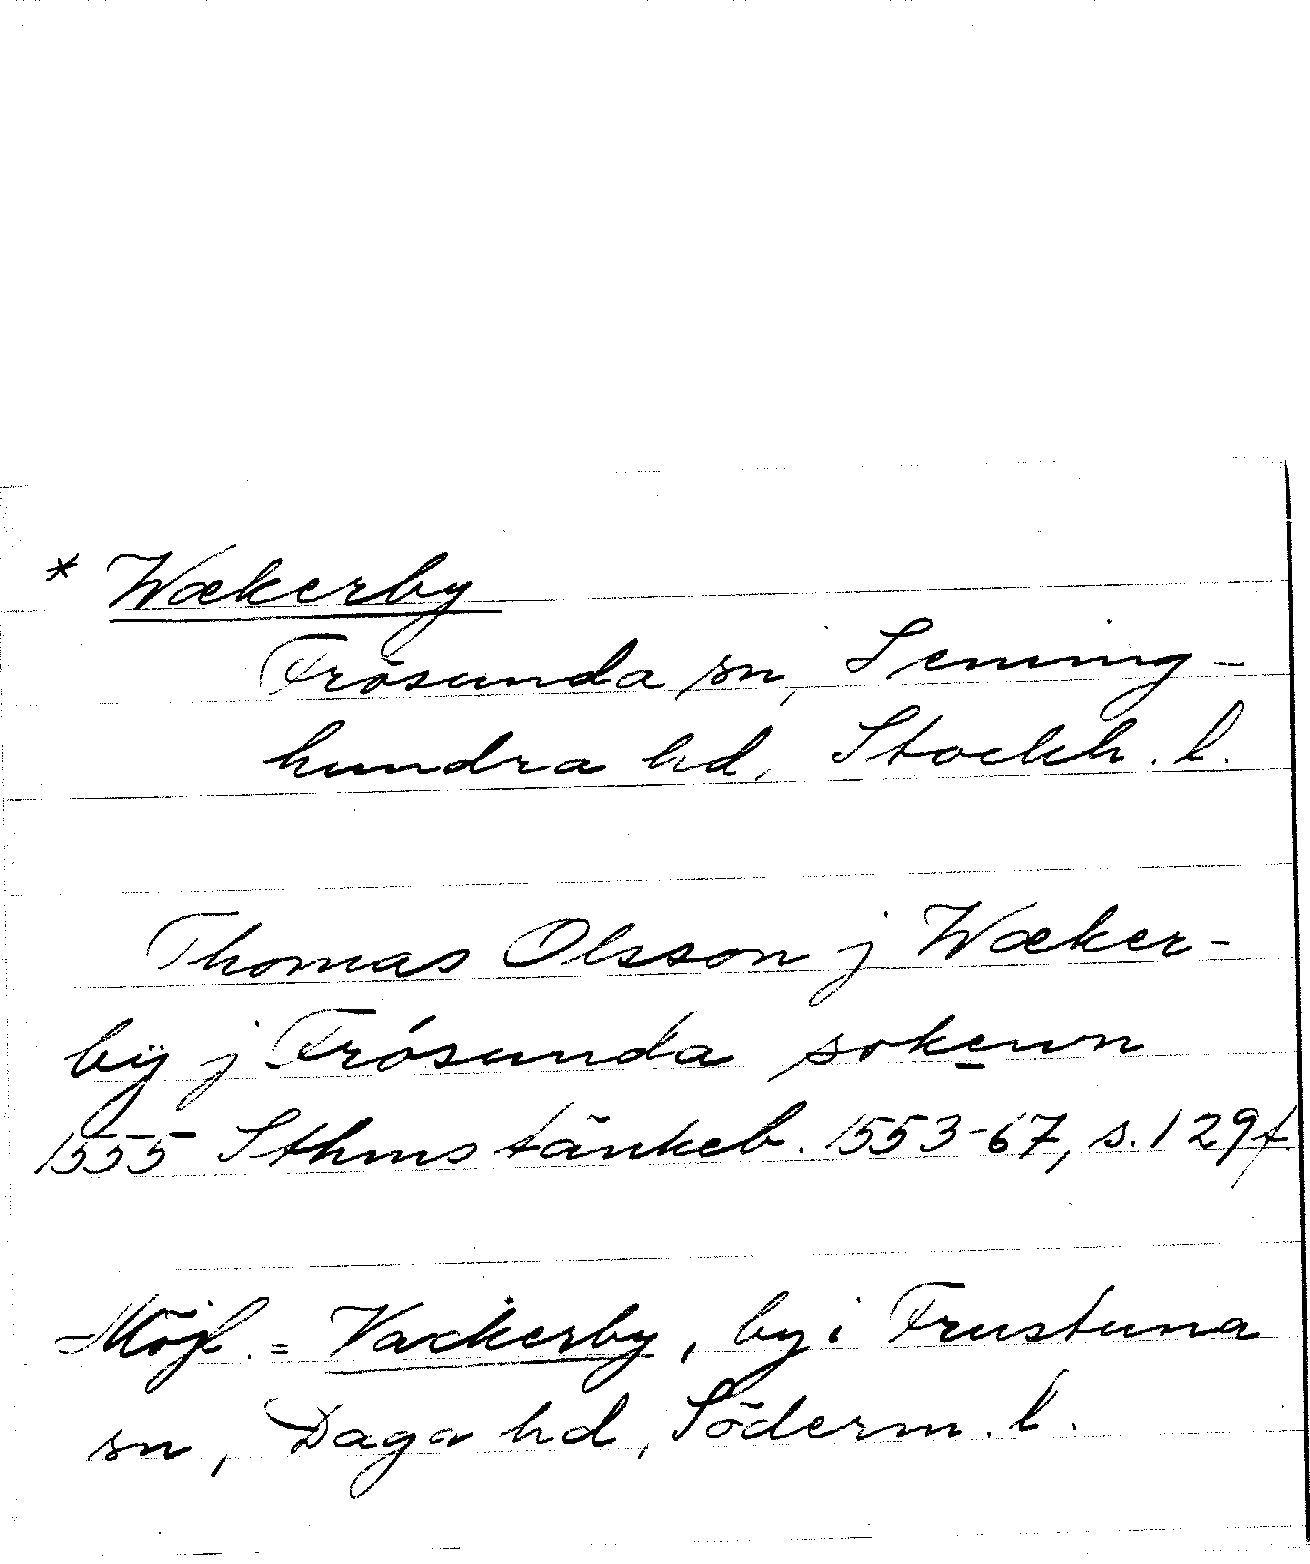 * Wækerby
Frösunda sn, Seming-
hundra hd, Stockh. l.
Thomas Olsson j Wæker-
bÿ j Frósunda sokenn
1555 Sthms tänkeb. 1553-67, s. 129f
Möjl. = Vackerby, by i Frustuna
sn, Daga hd, Söderm. l.